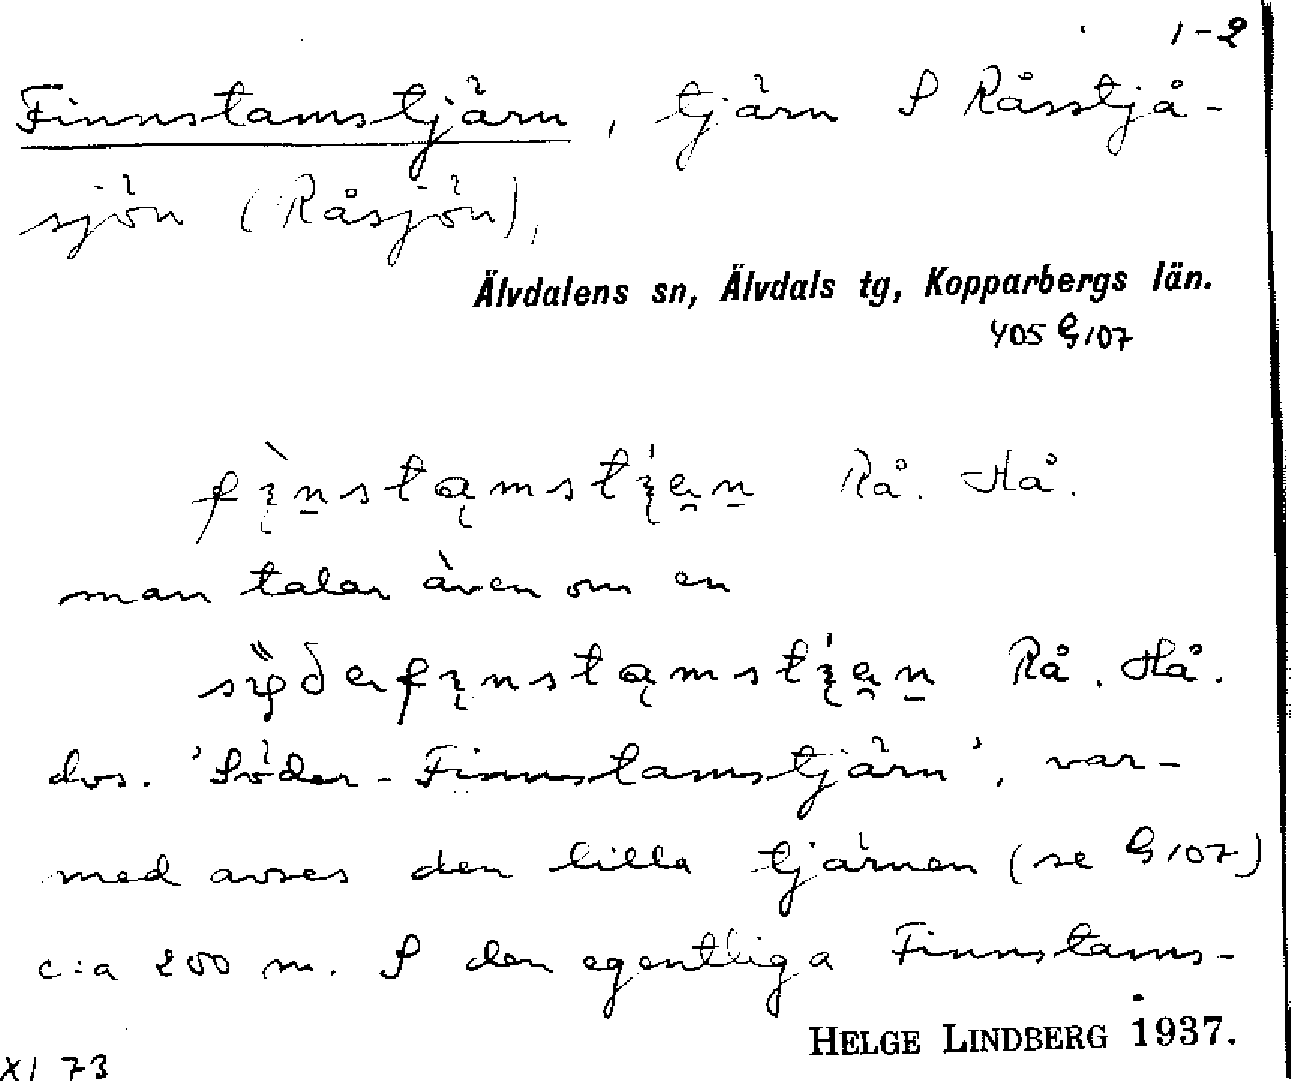 1-2
Finnstamstjärn, tjärn S Råsstjå-
sjön (Råsjön),
Älvdalens sn, Älvdals tg, Kopparbergs län.
405 G107
Rå. Hå.
man talar även om en
Rå. Hå.
dvs. 'Söder-Finnstamstjärn', var-
med avses den lilla tjärnen (se G107)
c:a 200 m. S den egentliga Finnstams-
HELGE LINDBERG 1937.
XI 73